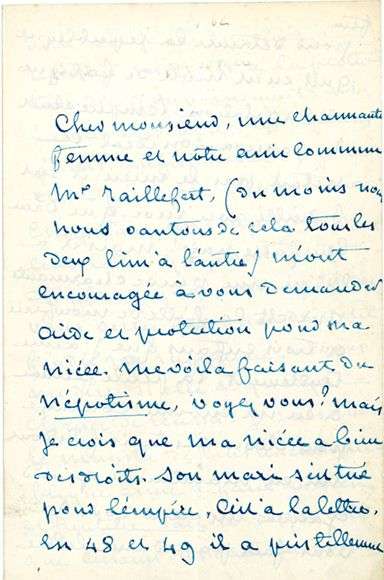 Cher monsieur, une charmante
femme et notre ami commun
Mr Taillefert, (du moins nous
nous vantons de cela tous les
deux l'un à l'autre) m'ont
encouragée à vous demander
aide et protection pour ma
nièce. me voilà faisant du
népotisme, voyez vous! mais
je crois que ma nièce a bien
des droits. son mari s'est tué
pour l'empire, c'est à la lettre.
en 48 et 49 il a